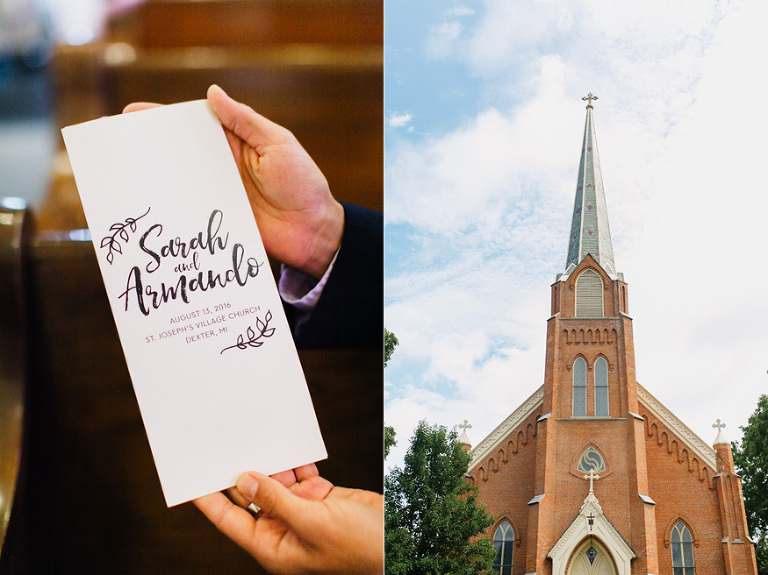 Sarah
and
Armando
AUGUST 13, 2016
ST. JOSEPH'S VILLAGE CHURCH
DEXTER, MI